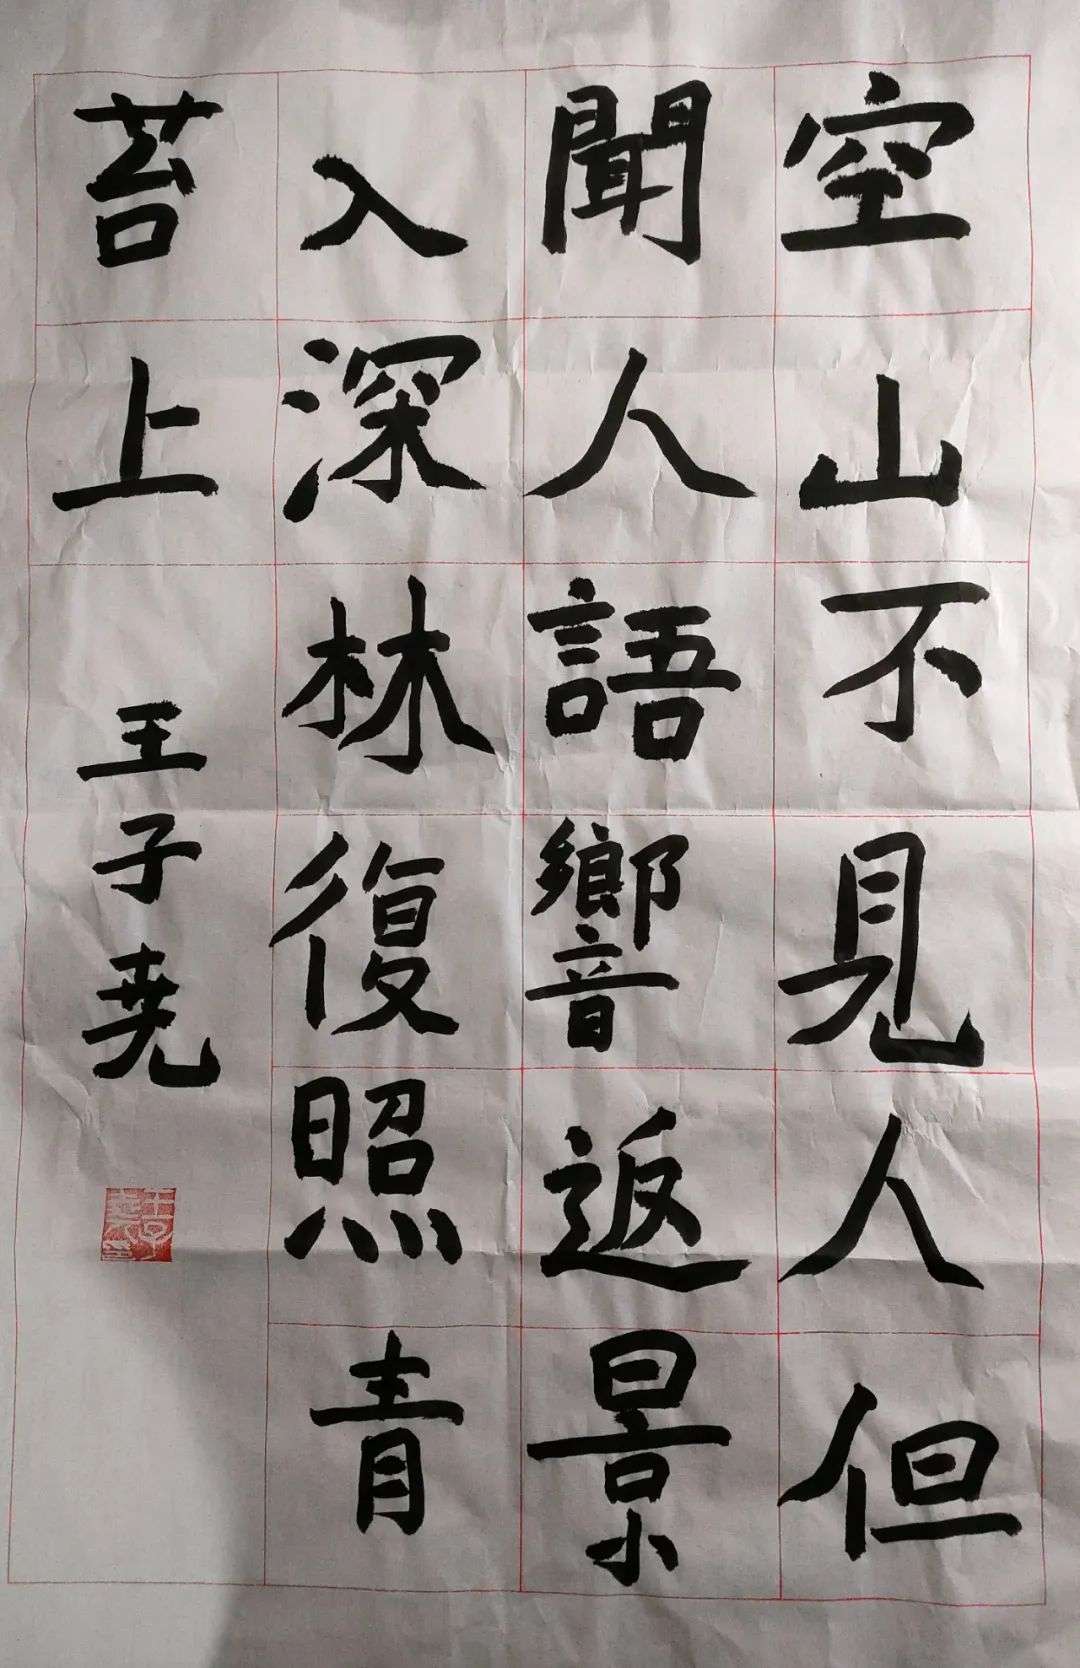 空山不見人但
聞人語響返景
入深林復照青
苔上
王子尧